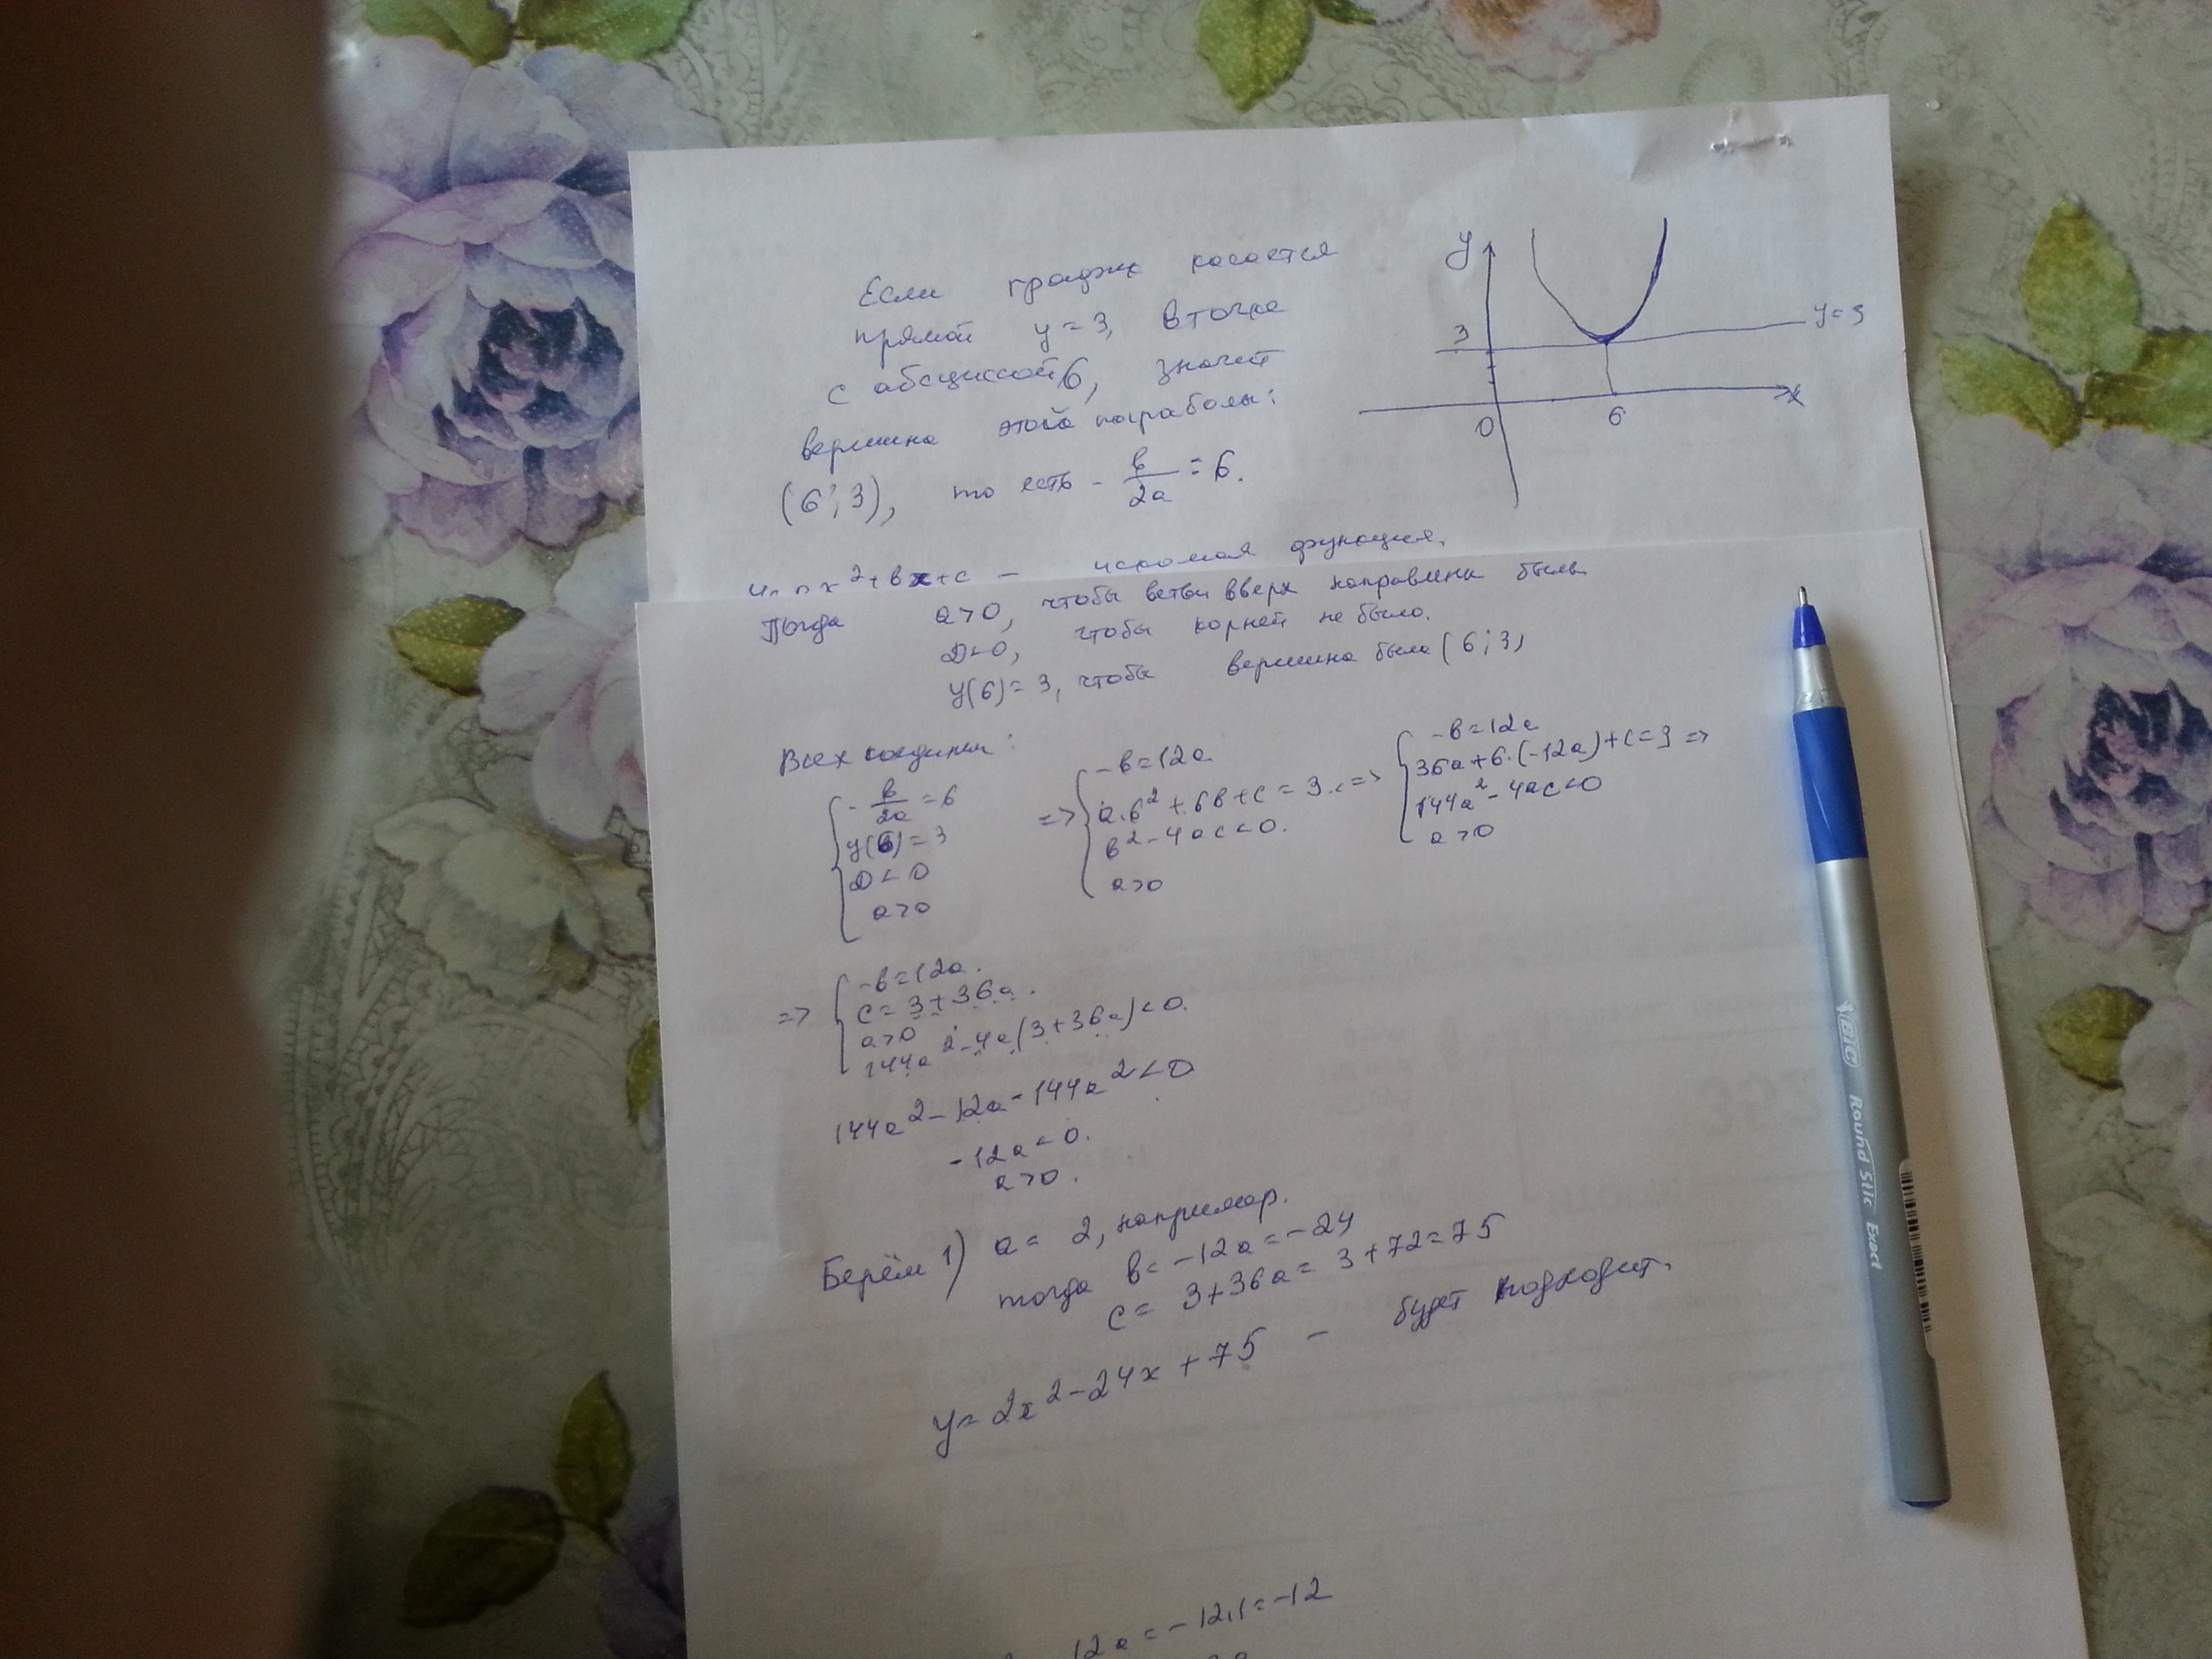 Если график касается
прямой y = 3, в точке
с абсциссой 6, значит
вершина этой параболы:
(6; 3), то есть - b/2a = 6.
y
3
y=3
0
6
x
x² + bx + c — искомая функция.
Тогда a > 0, чтобы ветви вверх направлены были
D < 0, чтобы корней не было.
y(6) = 3, чтобы вершина была (6; 3)
Всех соединим:
{ - b/2a = 6
y(6) = 3
D < 0
a > 0
=> { -b = 12a
a·6² + 6b + c = 3 =>
b² - 4ac < 0.
a > 0
{ -b = 12a
36a + 6·(-12a) + c = 3 =>
144a² - 4ac < 0
a > 0
=> { -b = 12a.
c = 3 + 36a.
a > 0
144a² - 4a(3 + 36a) < 0.
144a² - 12a - 144a² < 0
-12a < 0.
a > 0.
Берём 1) a = 2, например.
тогда b = -12a = -24
c = 3 + 36a = 3 + 72 = 75
y = 2x² - 24x + 75 — будет подходит.
12a = -12·1 = -12
BIC Round Stic Exact